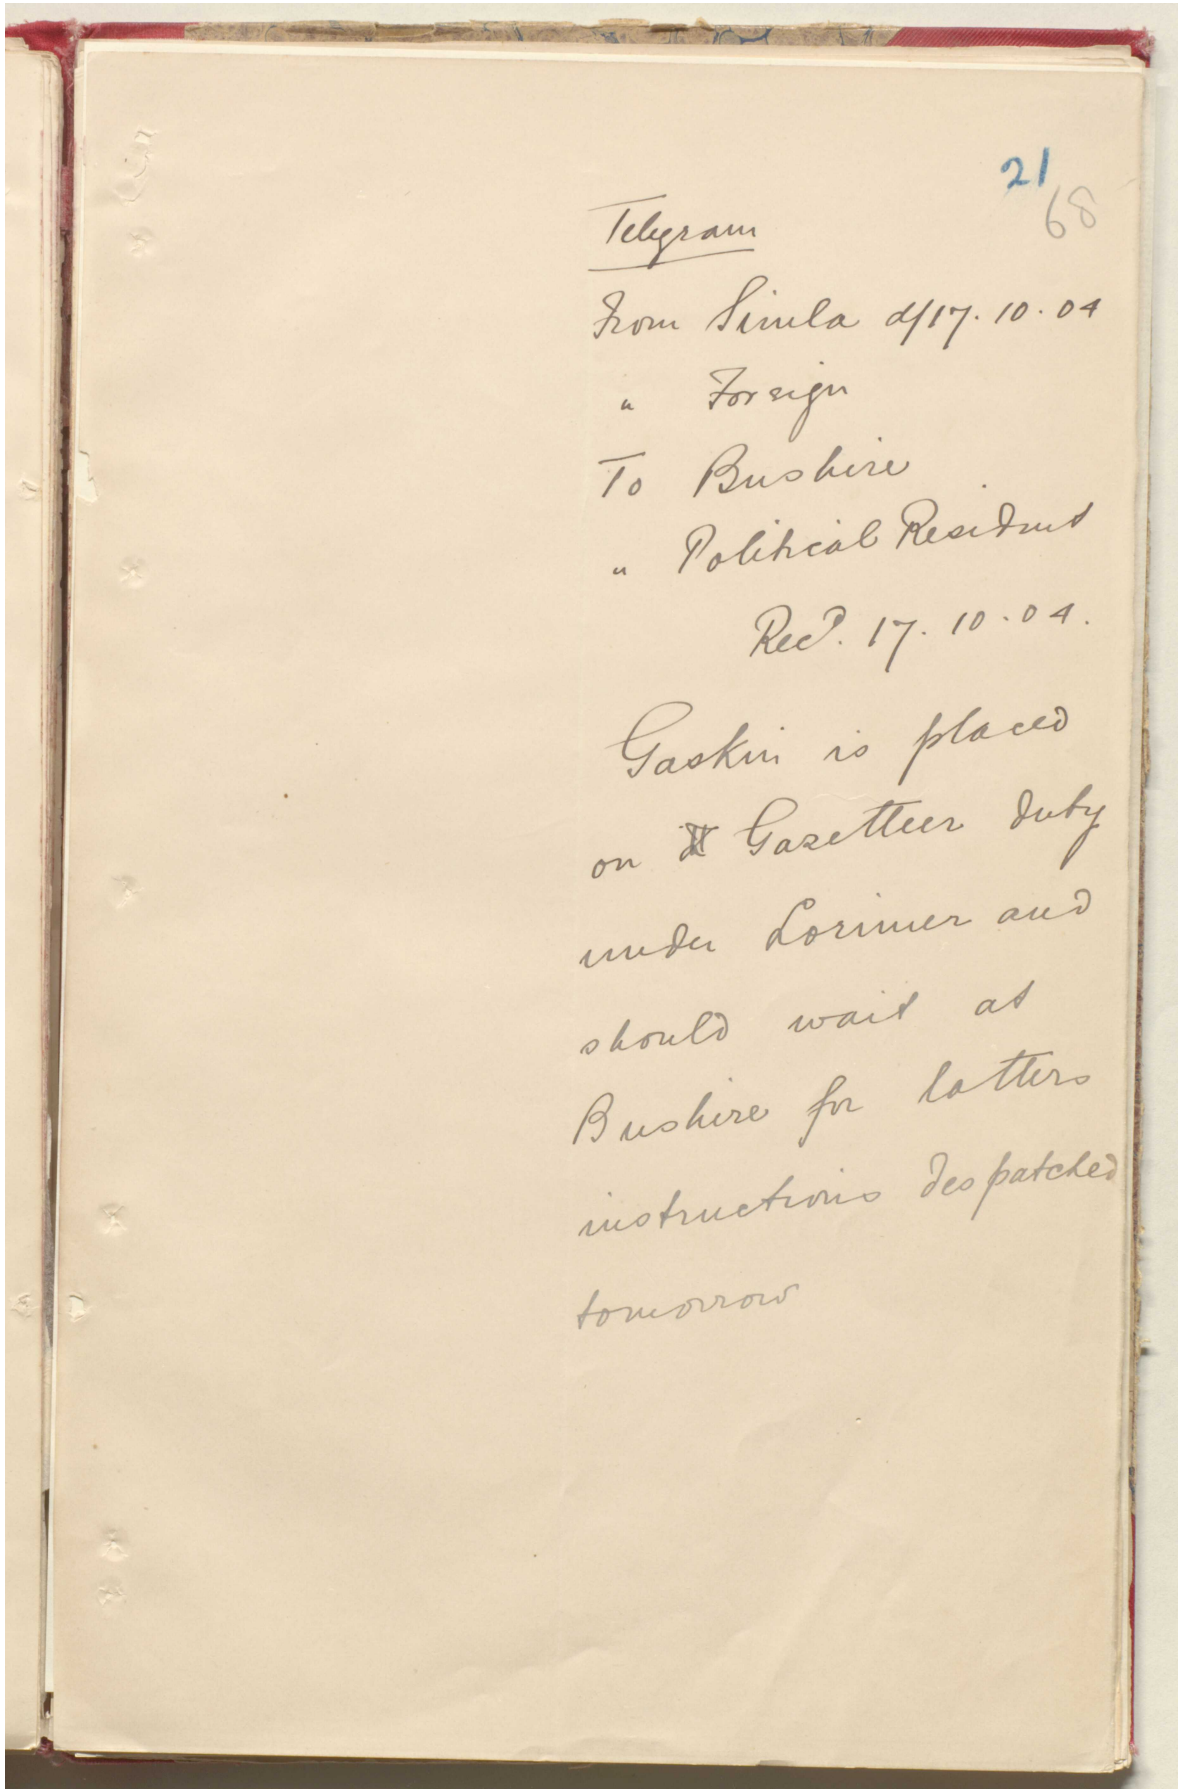 21
68
Telegram
From Simla d/17.10.04
" Foreign
To Bushire
" Political Resident
Recd. 17.10.04.
Gaskin is placed
on Gazetteer duty
under Lorimer and
should wait at
Bushire for latters
instructions despatched
tomorrow